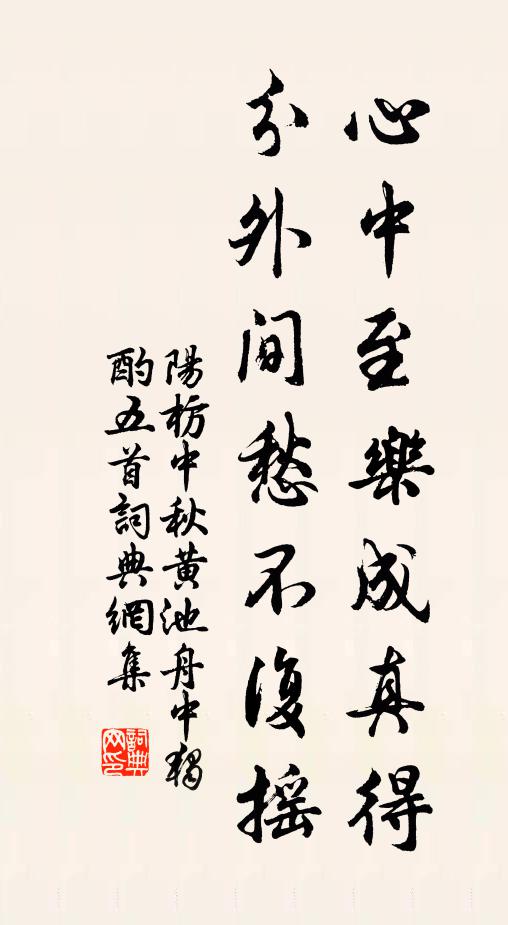 心中至樂成真得
分外閒愁不復摇
陽枋中秋黄池舟中獨
酌五首詞典網集
詞典
网印